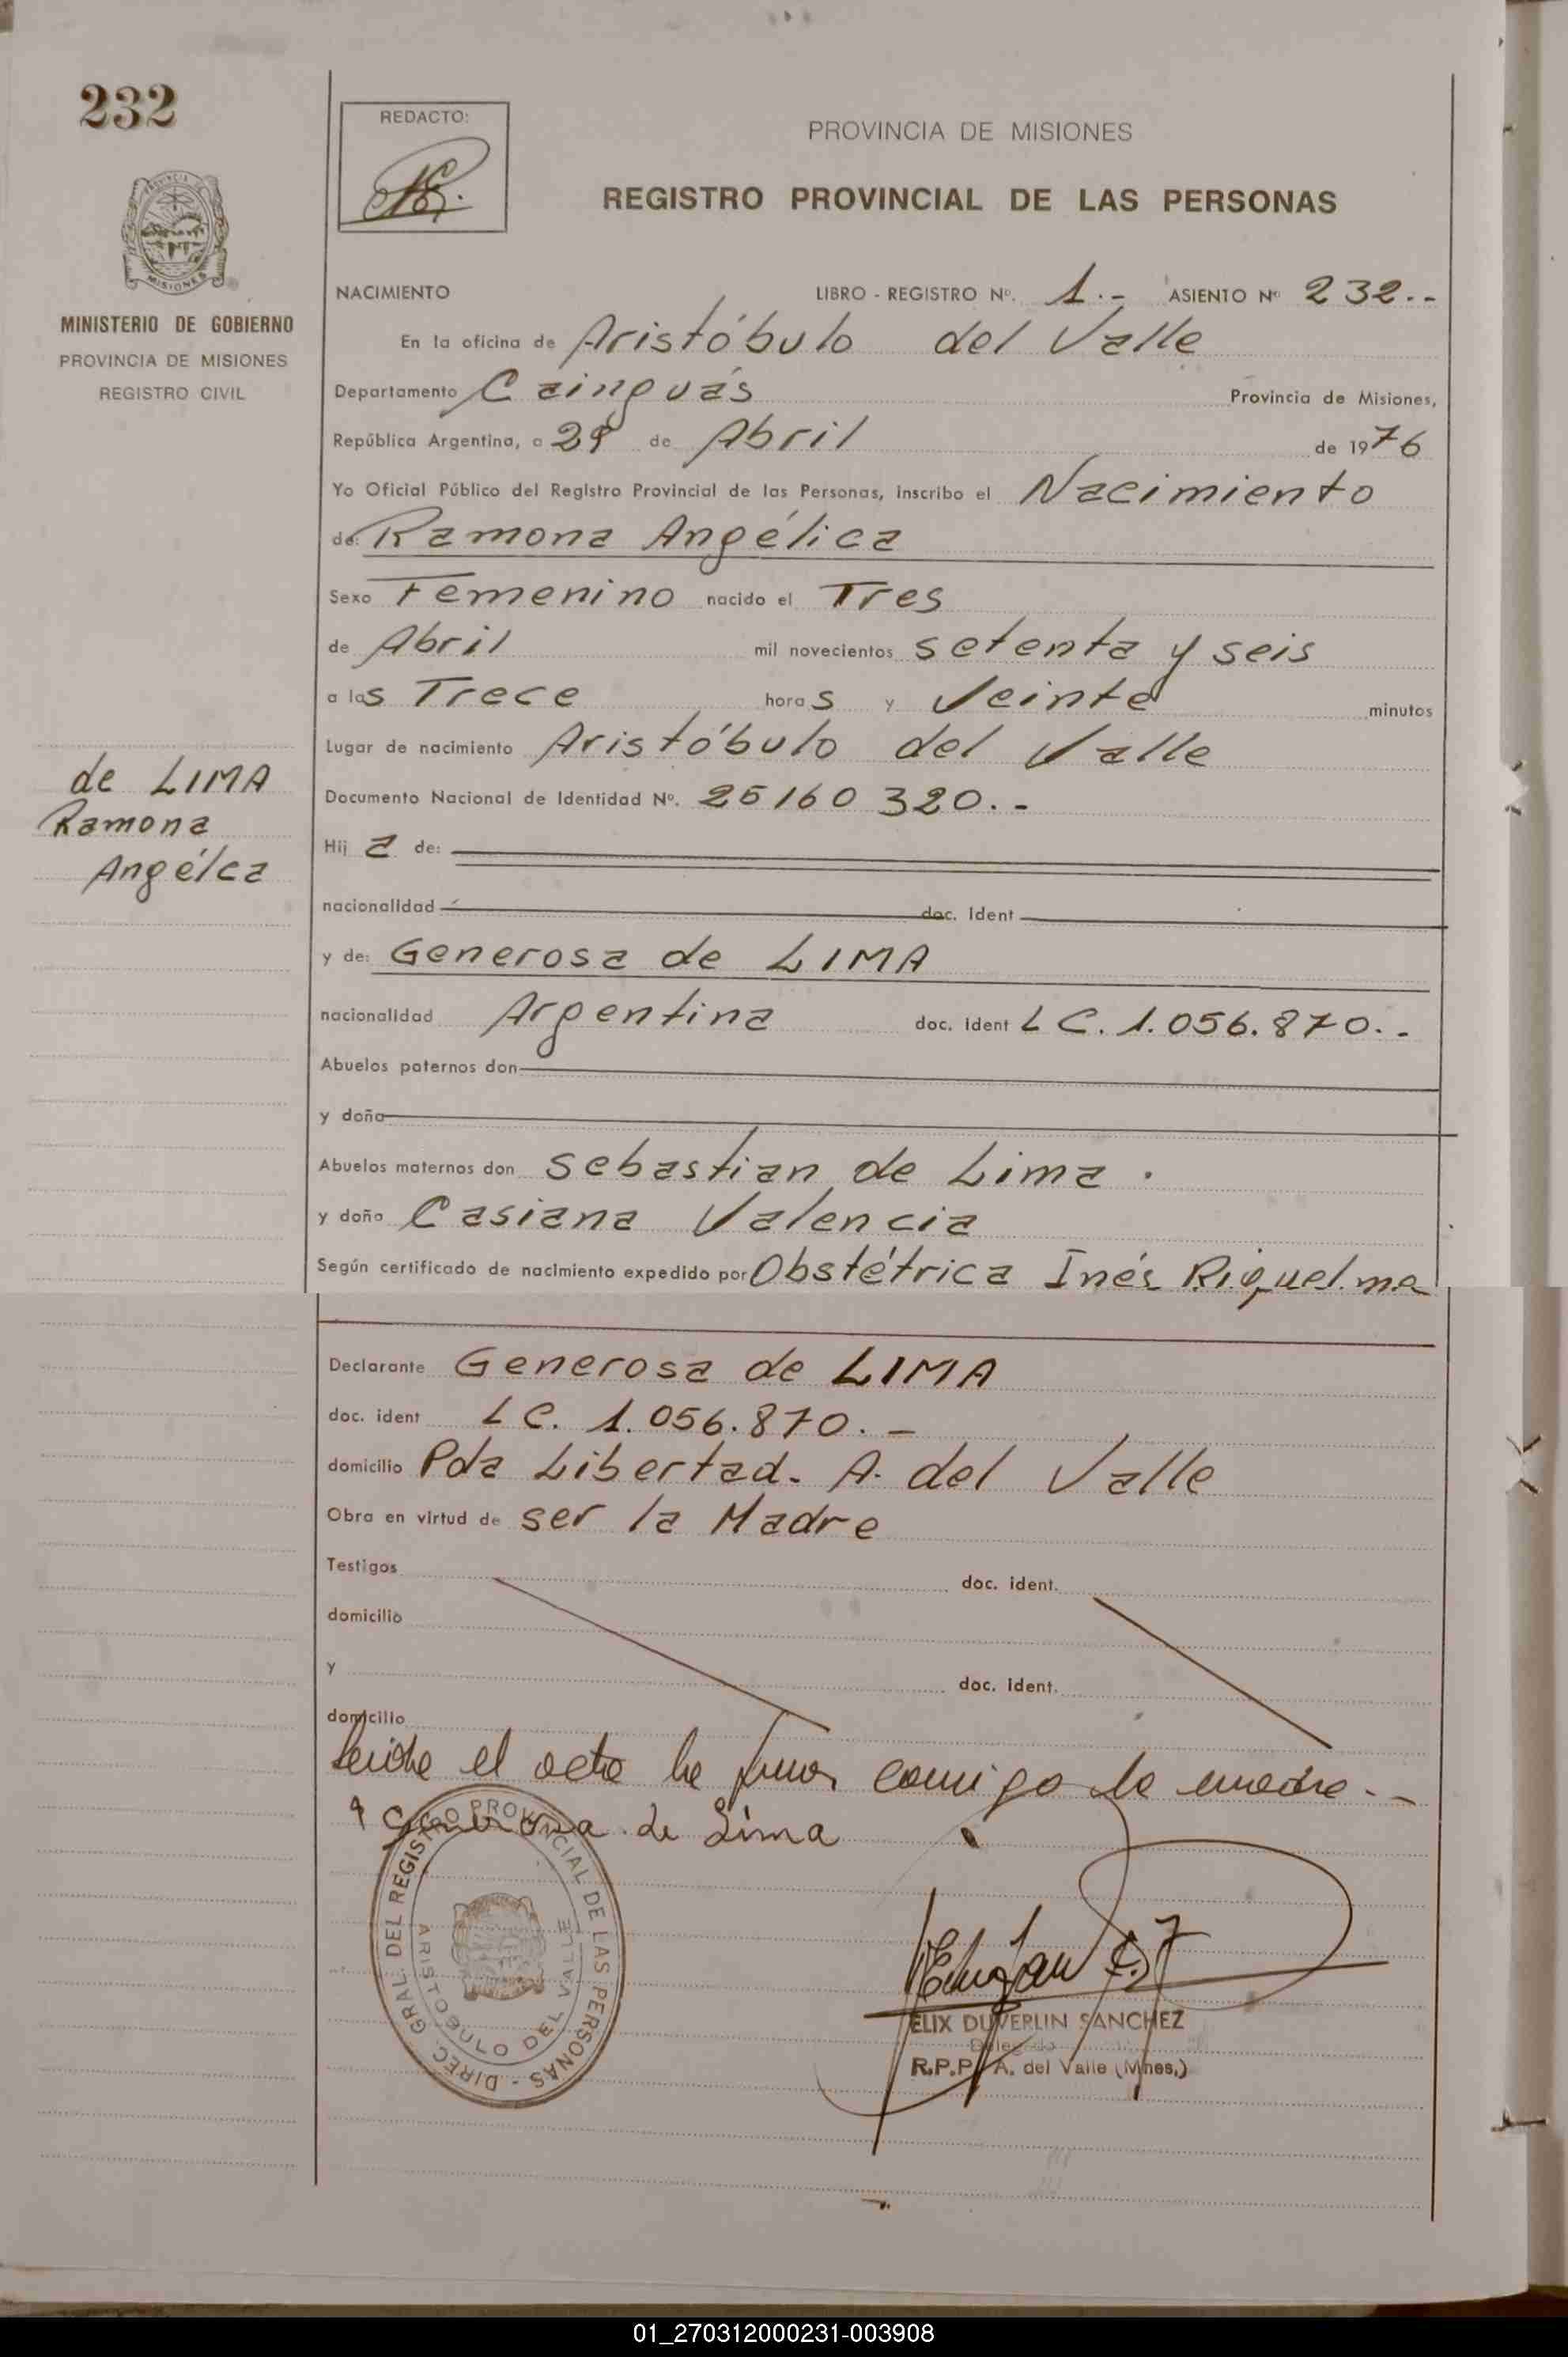 232
REDACTO:
PROVINCIA DE MISIONES
REGISTRO PROVINCIAL DE LAS PERSONAS
MISIONES
MINISTERIO DE GOBIERNO
PROVINCIA DE MISIONES
REGISTRO CIVIL
NACIMIENTO LIBRO - REGISTRO Nº. 1.- ASIENTO Nº 232.--
En la oficina de Aristóbulo del Valle
Departamento Cainguás Provincia de Misiones,
República Argentina, a 29 de Abril de 1976
Yo Oficial Público del Registro Provincial de las Personas, inscribo el Nacimiento
de: Ramona Angélica
Sexo Femenino nacido el Tres
de Abril mil novecientos setenta y seis
a las Trece horas y Veinte minutos
Lugar de nacimiento Aristóbulo del Valle
de LIMA
Ramona
Angélca
Documento Nacional de Identidad Nº. 25160320.-
Hij a de:
nacionalidad doc. Ident
y de: Generosa de LIMA
nacionalidad Argentina doc. Ident L C. 1.056.870.-
Abuelos paternos don
y doña
Abuelos maternos don Sebastian de Lima.
y doña Casiana Valencia
Según certificado de nacimiento expedido por Obstétrica Inés Riquelme
Declarante Generosa de LIMA
doc. ident L C. 1.056.870.-
domicilio Pda Libertad. A. del Valle
Obra en virtud de ser la Madre
Testigos doc. ident.
domicilio
y doc. ident.
domicilio
el acta la comigo la madre.--
de Lima
DIREC. GRAL. DEL REGISTRO PROVINCIAL DE LAS PERSONAS -
ARISTOBULO DEL VALLE
ELIX DUVERLIN SANCHEZ
Delegado
R.P.P. A. del Valle (Mnes.)
01_270312000231-003908